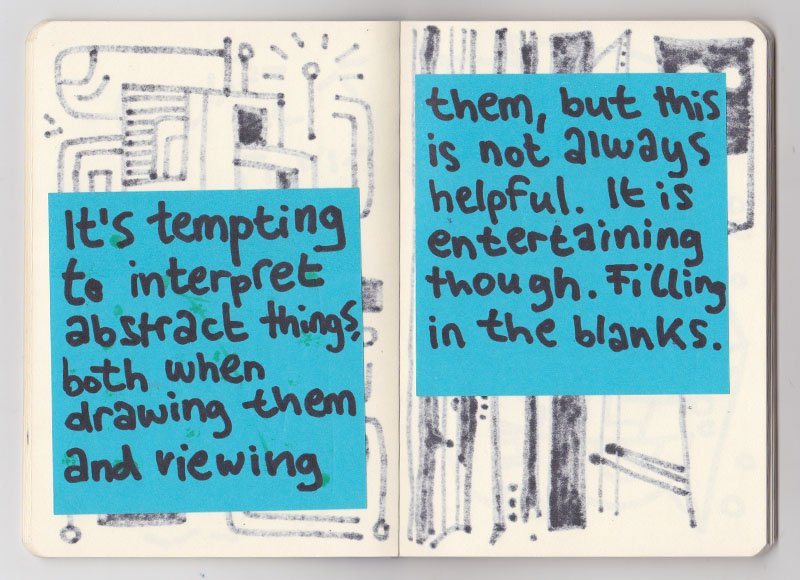 It's tempting
to interpret
abstract things,
both when
drawing them
and viewing
them, but this
is not always
helpful. It is
entertaining
though. Filling
in the blanks.